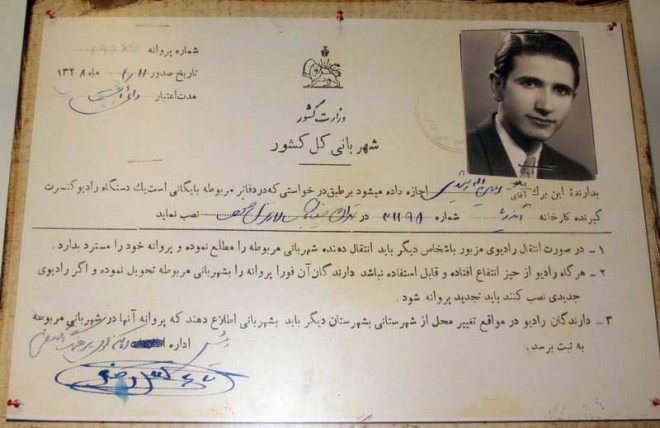 شماره پروانه
تاریخ صدور ۱۱ ماه ۱۳۲۸
مدت اعتبار
وزارت کشور
شهربانی کل کشور
بدارندهٔ این برك آقای اجازه داده میشود برطبق درخواستی که در دفاتر مربوطه بایگانی است یك دستگاه رادیو کنسرت
گیرنده کارخانه شماره در نصب نماید
۱ – در صورت انتقال رادیوی مزبور باشخاص دیگر باید انتقال دهنده شهربانی مربوطه را مطلع نموده و پروانه خود را مسترد بدارد.
۲ – هرگاه رادیو از حیز انتفاع افتاده و قابل استفاده نباشد دارندگان آن فوراً پروانه را بشهربانی مربوطه تحویل نموده و اگر رادیوی
جدیدی نصب کنند باید تجدید پروانه شود.
۳ – دارندگان رادیو در مواقع تغییر محل از شهرستانی بشهرستان دیگر باید بشهربانی اطلاع دهند که پروانه آنها در شهربانی مربوطه
به ثبت برسد.
اداره